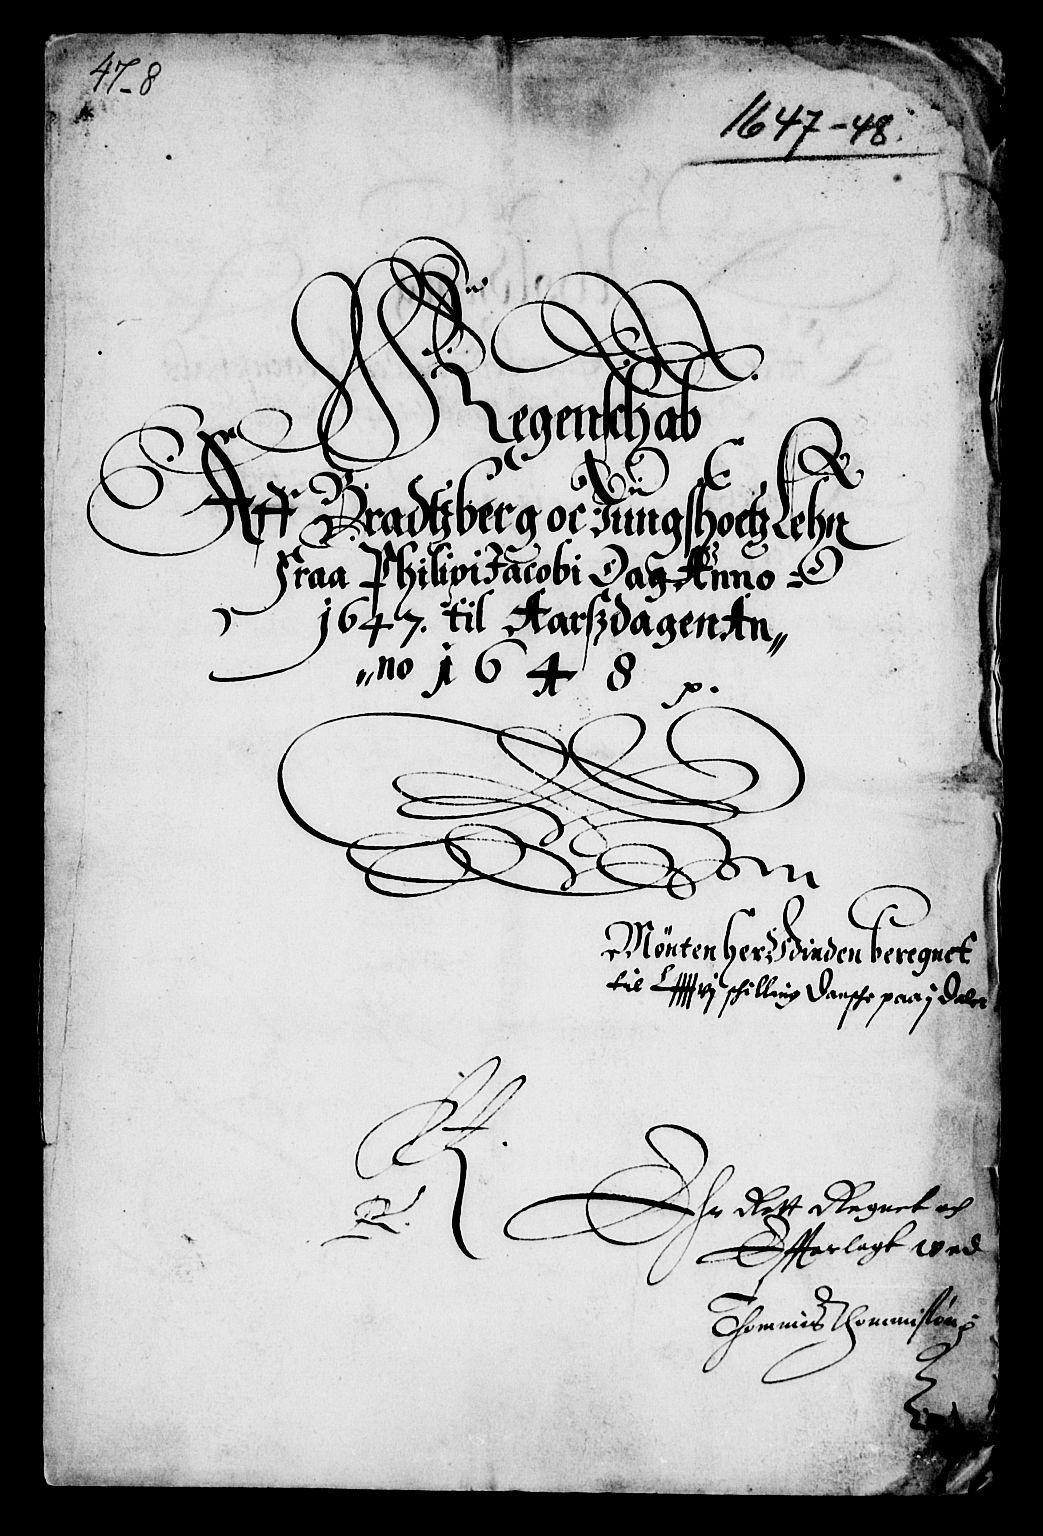 47-8
1647-48.
Regenschab
Aff Bradtzberg oc Jungshoetz Lehn
Fraa Philipi Jacobi Dag Anno
1647. til Aarszdagen An„
„no 1648
Mönten her Vdinden beregnet
til Lxxxxvj schilling Dansche paa j Daler
R.
Ehr Rett Regnet och
Offuerlagt wed
Thommis Thommissön